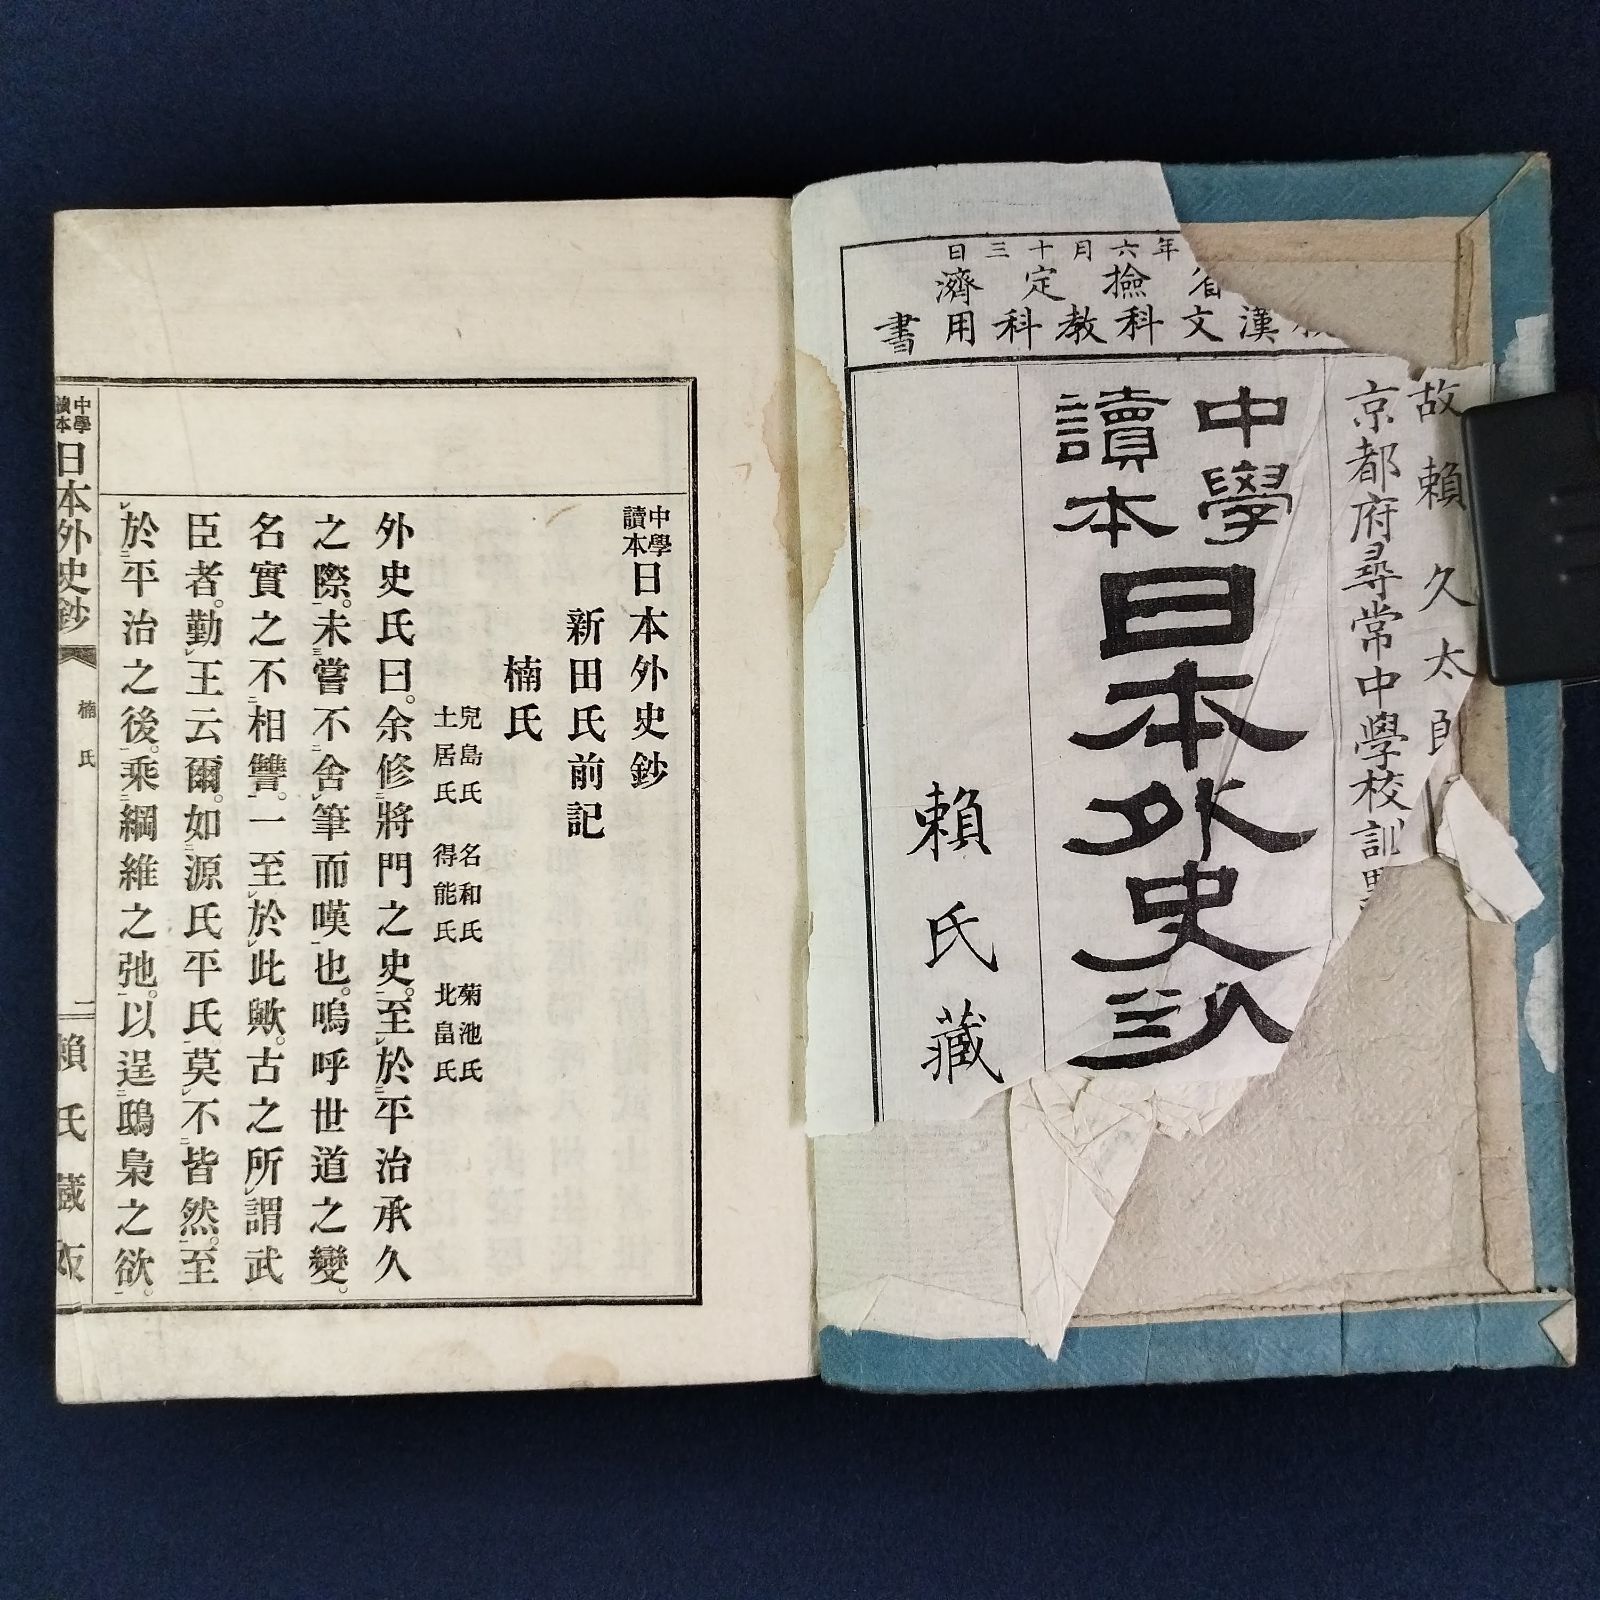 年六月十三日
省撿定濟
漢文科教科用書
故賴久太郎
京都府尋常中學校訓
中學
讀本
日本外史鈔
賴氏藏
中學
讀本
日本外史鈔
新田氏前記
楠氏
兒島氏 名和氏 菊池氏
土居氏 得能氏 北畠氏
外史氏曰。余修二將門之史一。至レ於二平治承久
之際一。未三嘗不二舍レ筆而嘆一也。嗚呼世道之變。
名實之不二相讐一。一至レ於レ此歟。古之所レ謂武
臣者。勤レ王云爾。如二源氏平氏一。莫レ不二皆然一。至レ
於二平治之後一。乘二綱維之弛一。以逞二鴟梟之欲一。
中學
讀本
日本外史鈔
楠氏
二
賴氏藏版